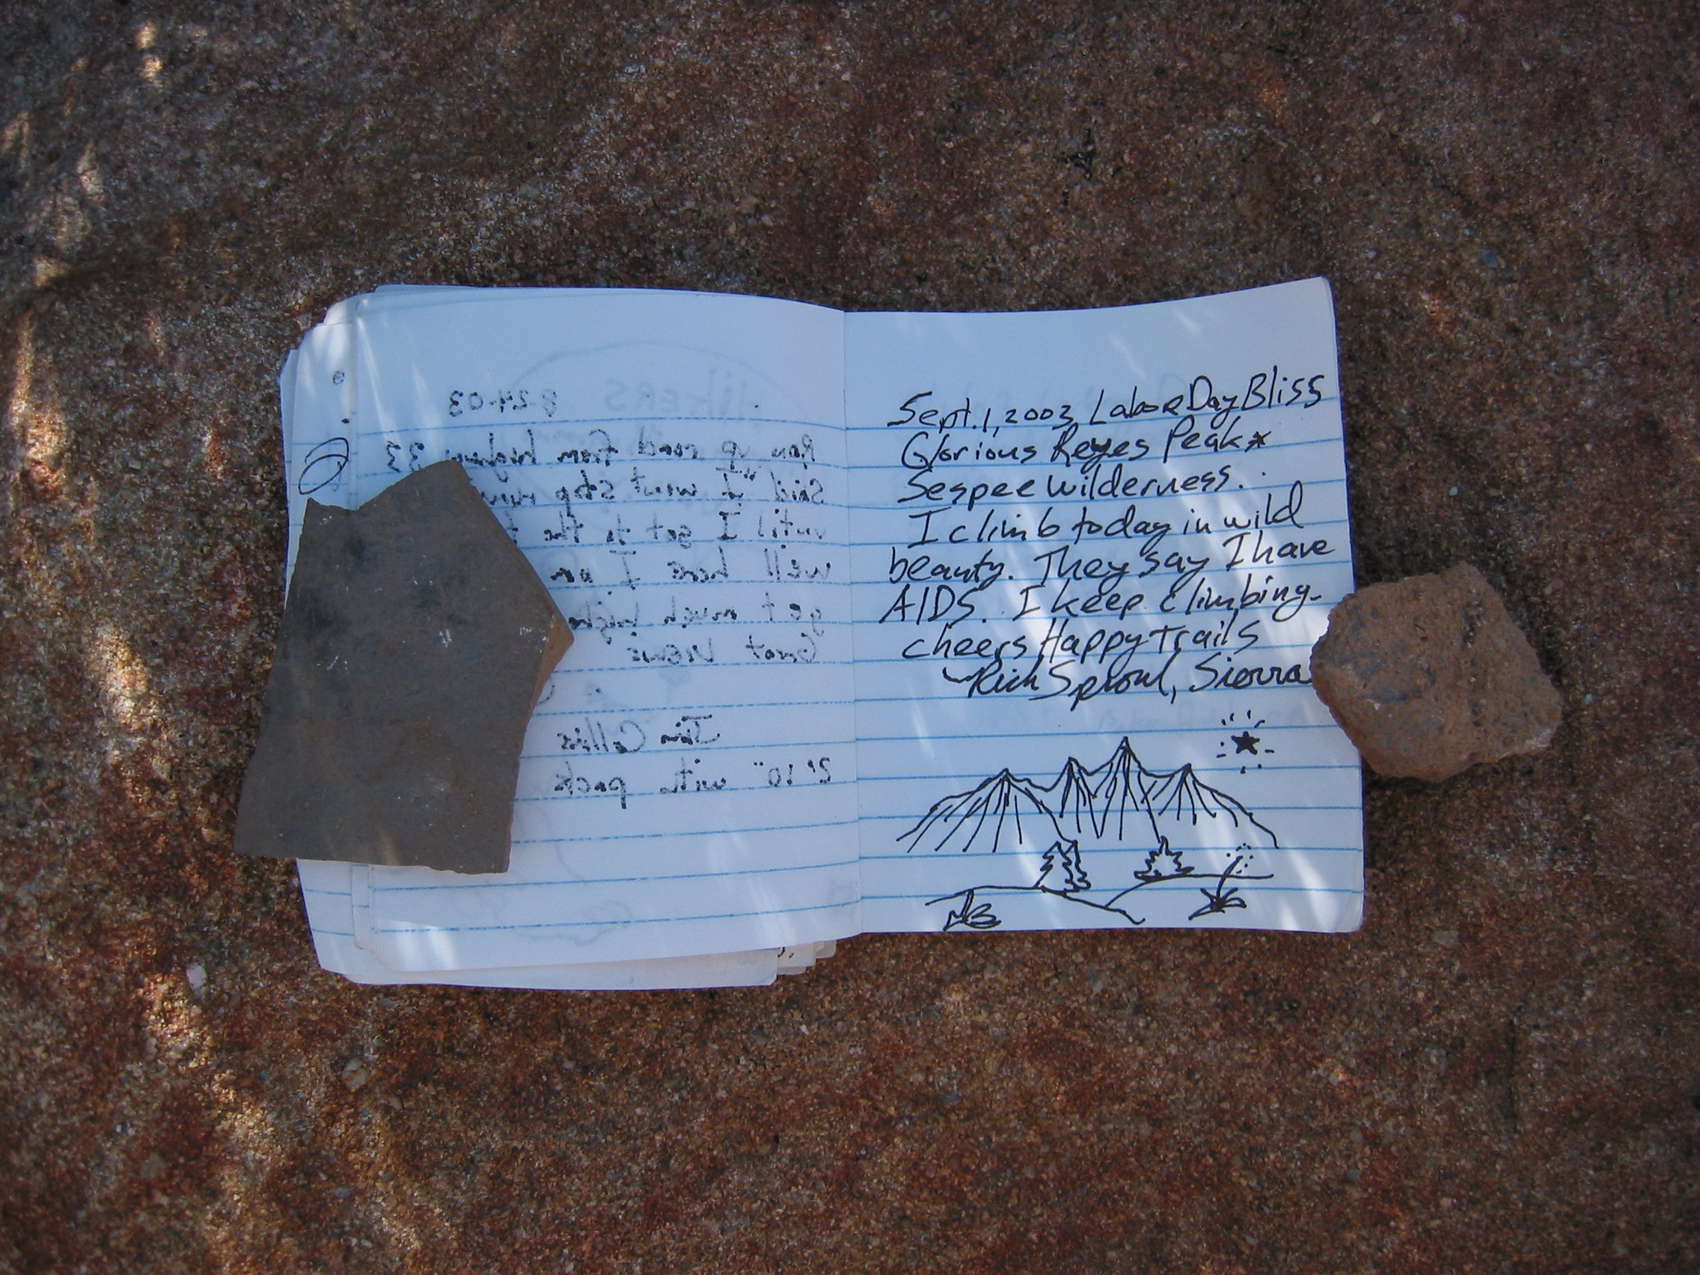 8-24-03
Ran up road from highway 33
Said "I wont stop
until I get to the
well here I am
get much
Great Views
Jim Collins
2' 10" with pack
Sept. 1, 2003, Labor Day Bliss
Glorious Reyes Peak*
Sespee Wilderness.
I climb today in wild
beauty. They say I have
AIDS. I keep climbing.
cheers Happy Trails
~Rich Sproul, Sierra